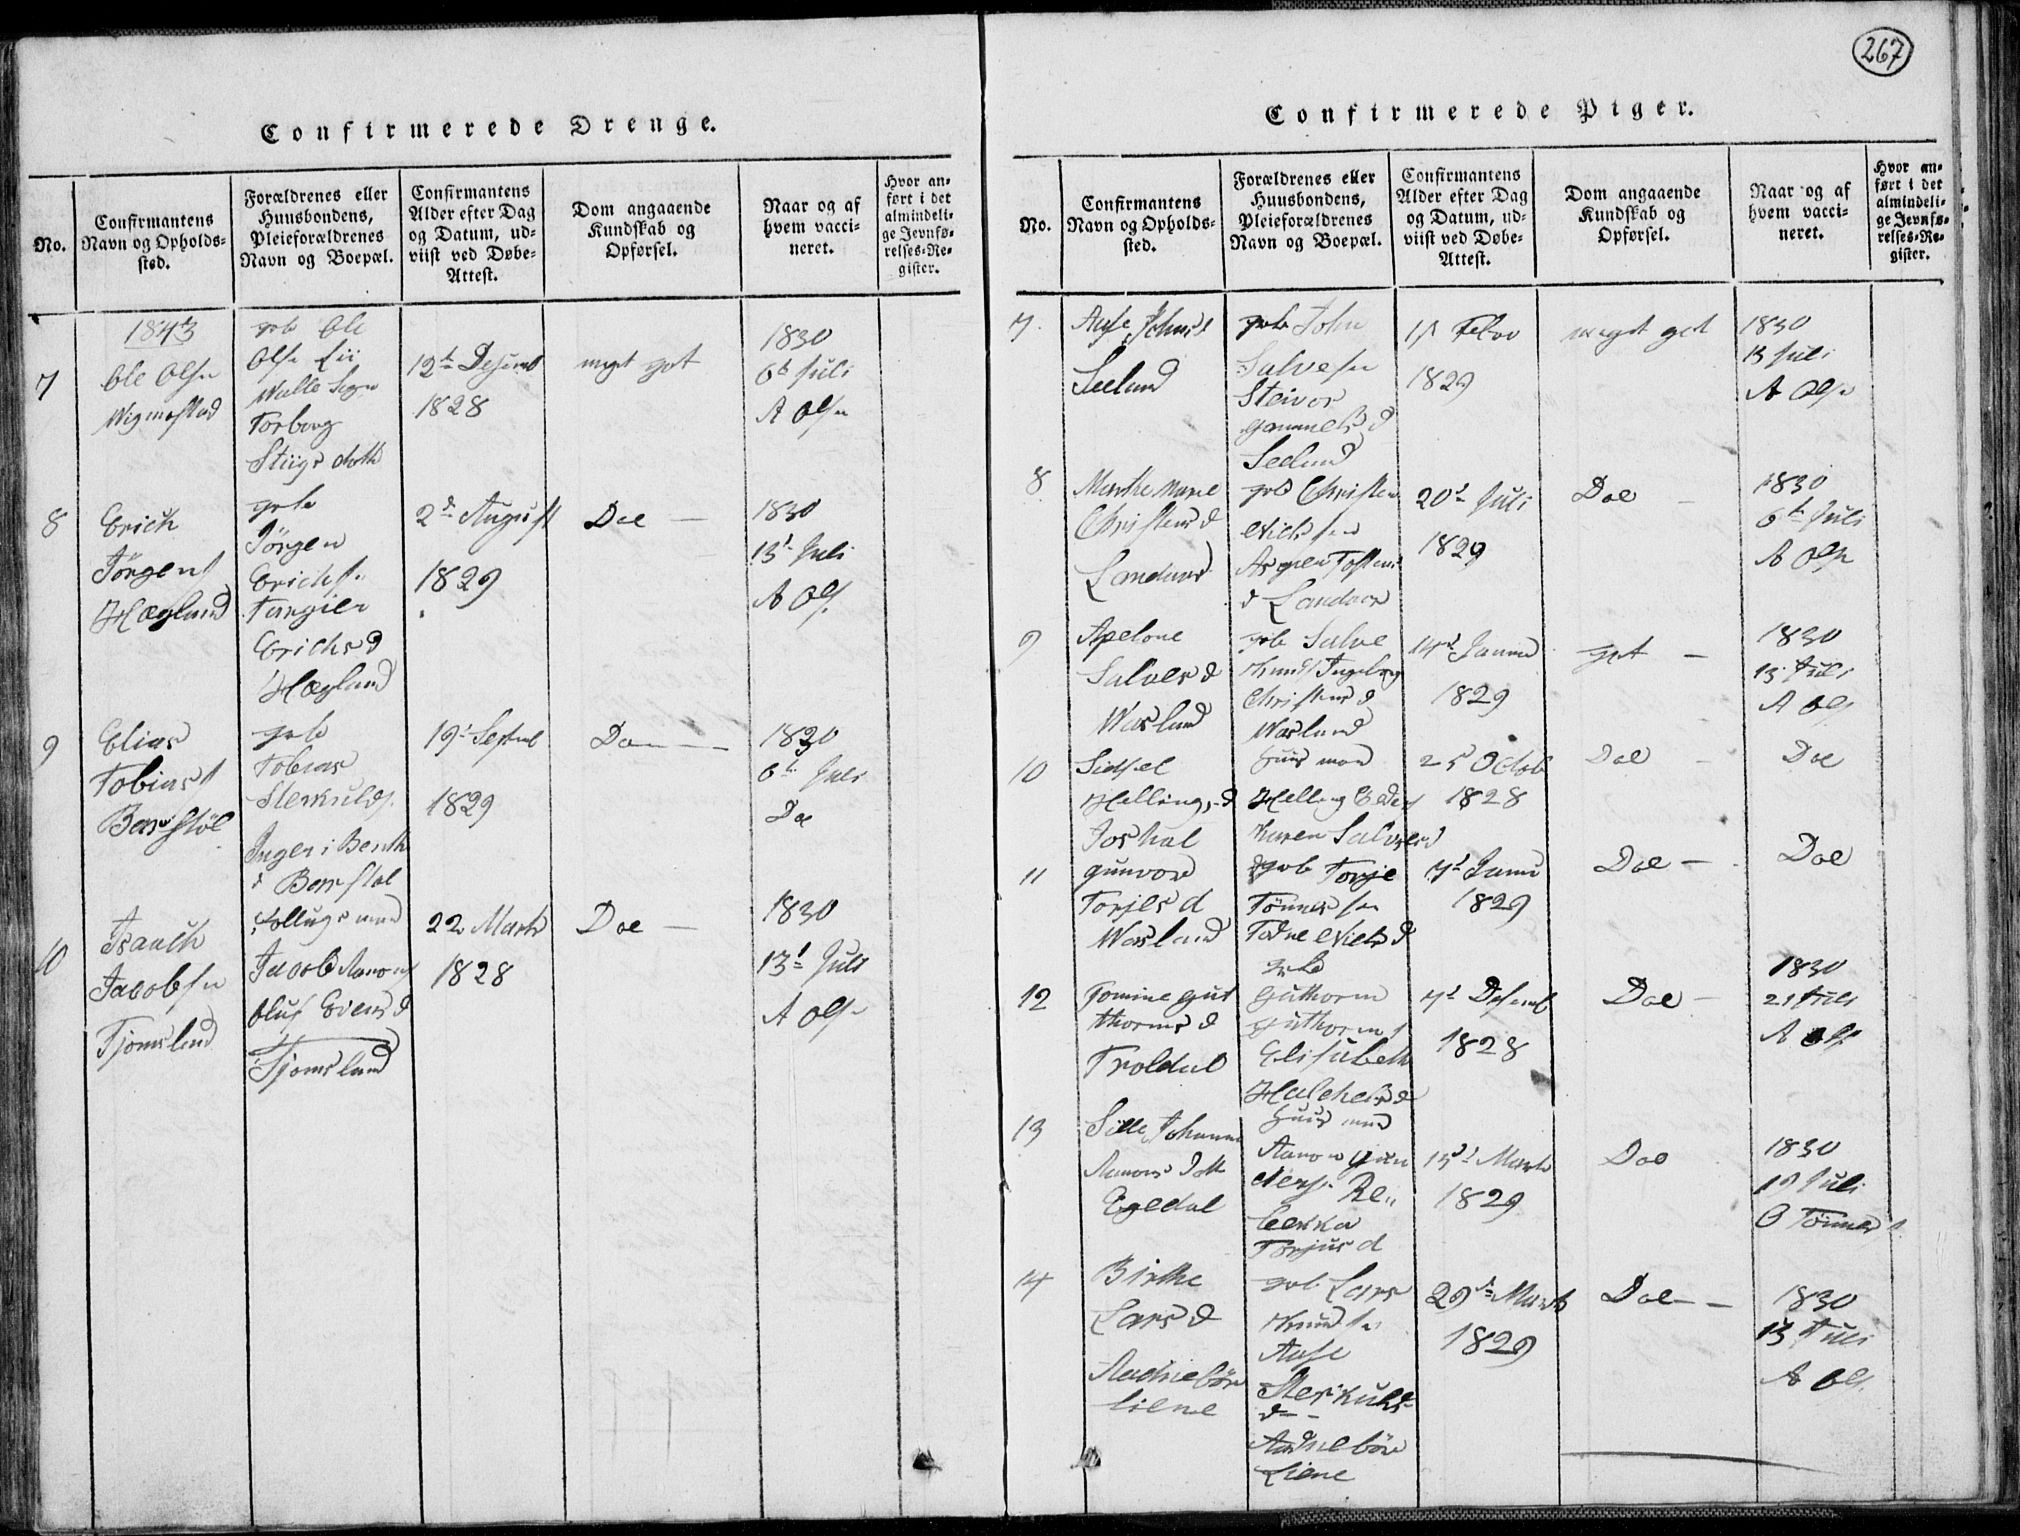 267
Confirmerede Drenge.
No.
Confirmantens
Navn og Opholds-
sted.
Forældrenes eller
Huusbondens,
Pleieforældrenes
Navn og Boepæl.
Confirmantens
Alder efter Dag
og Datum, ud-
viist ved Døbe-
Attest.
Dom angaaende
Kundskab og
Opførsel.
Naar og af
hvem vacci-
neret.
Hvor an-
ført i det
almindeli-
ge Jevnfø-
relses-Re-
gister.
1843
7
Ole Olsn
Wigmostad
grb Ole
Olsn Lii
Walle Sogn
Torborg
Stiigs doth
12t Desemb
1828
meget got
1830
6t Juli
A Olsn
8
Erich
Jörgens
Hægland
grb
Jörgen
Erichsn
Tangier
Erichs d
Hægland
2d August
1829
Doe —
1830
13t Juli
A Ols.
9
Elias
Tobias
grb
Tobias
Sterkulds.
Ingeri Benth
d
19t Septemb
1829
Do —
1830
6t Juli
Do
10
Isaach
Jacobsn
Tjomsland
Jacob Aanons
Oluf Evens d
Tjomsland
22 Marts
1828
Doe —
1830
13t Juli
A Olsn
Confirmerede Piger.
No.
Confirmantens
Navn og Opholds-
sted.
Forældrenes eller
Huusbondens,
Pleieforældrenes
Navn og Boepæl.
Confirmantens
Alder efter Dag
og Datum, ud-
viist ved Døbe-
Attest.
Dom angaaende
Kundskab og
Opførsel.
Naar og af
hvem vacci-
neret.
Hvor an-
ført i det
almindeli-
ge Jevnfø-
relses-Re-
gister.
7.
Aase Johns d
Seeland
grb John
Salvesn
Steivor
Gammels d
Seeland
Febr
1829
meget got
1830
13 Juli
A Olsn
8
Marthe Marie
Christens d
Landaas
grb Christen
Nielsen
Asgier Tostens
d Landaas
20t Juli
1829
Doe —
1830
6t Juli
A Olsn
9
Apelone
Salves d
Wasland
grb Salve
Knuds Ingeborg
Christens d
Wasland
14d Janua
1829
got —
1830
13 Juli
A Ols
10
Sidsel
Hellings d
Joshal
Huus man
Helling Peders
Karen Salves d
25 Octob
1828
Doe —
Doe
11
Gunvor
Torjes d
Wasland
grb Torje
Tönnessn
Tadne Niels d
7d Janu
1829
Doe —
Doe
12
Tomine Gut
thorms d
Troldal
grb
Guthorm
Guthorms
Elisabeth
Halchels d
7d Desemb
1828
Doe —
1830
21 Juli
A Ols
13
Sille Johanne
Aanons Dtt
Egedal
Huus man
Aanon Gun
ders. Re„
bekka
Torjus d
15d Marts
1829
Doe
1830
19 Juli
O Tönnes
14
Birthe
Lars d
Aadnebör
Liene
grb Lars
Knudsn
Aase
Sterkulds
d —
Aadnebör
Liene
29d Marts
1829
Doe —
1830
13 Juli
A Ols.